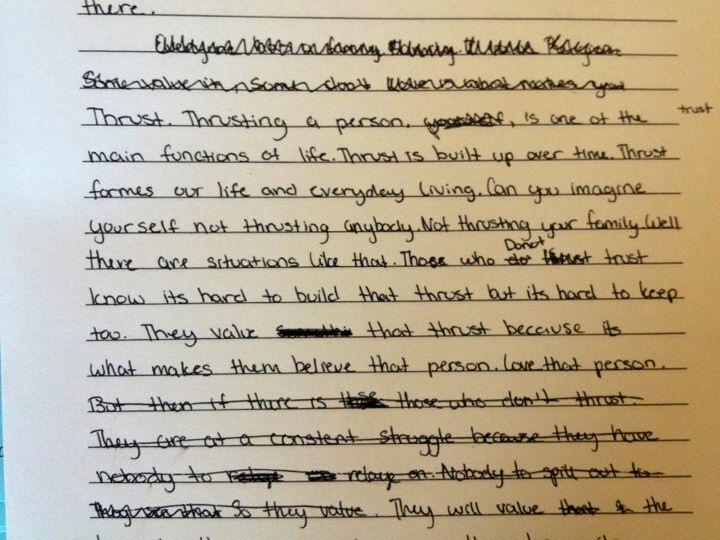 there.
Some value in, Some don't
Thrust. Thrusting a person, yourself, is one of the trust
main functions of life. Thrust is built up over time. Thrust
formes our life and everyday living. Can you imagine
yourself not thrusting anybody. Not thrusting your family. Well
there are situations like that. Those who do Donot thrust trust
know its hard to build that thrust but its hard to keep
too. They value that thrust because its
what makes them believe that person. Love that person.
But then if there is those who don't thrust.
They are at a constent struggle because they have
nobody to relaye on. Nobody to spill out to
So they value. They will value the